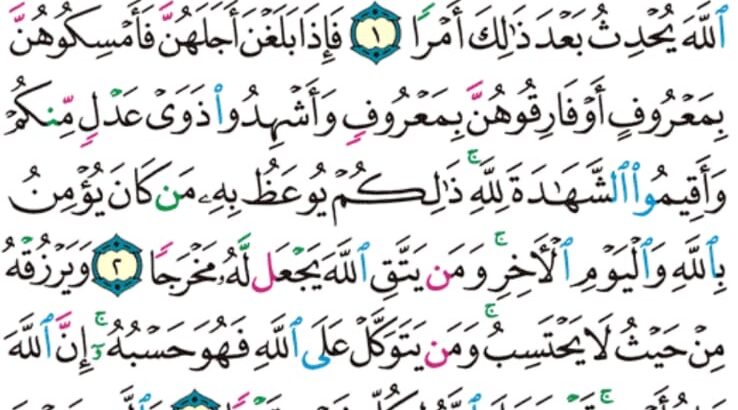 ٱللَّهَ يُحۡدِثُ بَعۡدَ ذَٰلِكَ أَمۡرٗا ١ فَإِذَا بَلَغۡنَ أَجَلَهُنَّ فَأَمۡسِكُوهُنَّ
بِمَعۡرُوفٍ أَوۡ فَارِقُوهُنَّ بِمَعۡرُوفٖ وَأَشۡهِدُواْ ذَوَيۡ عَدۡلٖ مِّنكُمۡ
وَأَقِيمُواْ ٱلشَّهَٰدَةَ لِلَّهِۚ ذَٰلِكُمۡ يُوعَظُ بِهِۦ مَن كَانَ يُؤۡمِنُ
بِٱللَّهِ وَٱلۡيَوۡمِ ٱلۡأٓخِرِۚ وَمَن يَتَّقِ ٱللَّهَ يَجۡعَل لَّهُۥ مَخۡرَجٗا ٢ وَيَرۡزُقۡهُ
مِنۡ حَيۡثُ لَا يَحۡتَسِبُۚ وَمَن يَتَوَكَّلۡ عَلَى ٱللَّهِ فَهُوَ حَسۡبُهُۥٓۚ إِنَّ ٱللَّهَ